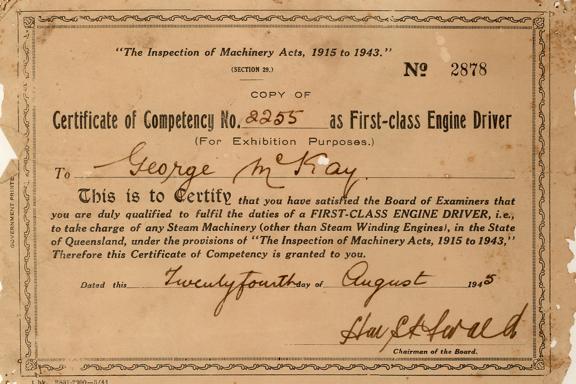 "The Inspection of Machinery Acts, 1915 to 1943."
(SECTION 29.)
No 2878
COPY OF
Certificate of Competency No. 2255 as First-class Engine Driver
(For Exhibition Purposes.)
To George McKay.
This is to Certify that you have satisfied the Board of Examiners that
you are duly qualified to fulfil the duties of a FIRST-CLASS ENGINE DRIVER, i.e.,
to take charge of any Steam Machinery (other than Steam Winding Engines), in the State
of Queensland, under the provisions of "The Inspection of Machinery Acts, 1915 to 1943,"
Therefore this Certificate of Competency is granted to you.
Dated this Twentyfourth day of August 1945
Chairman of the Board.
GOVERNMENT PRINTER